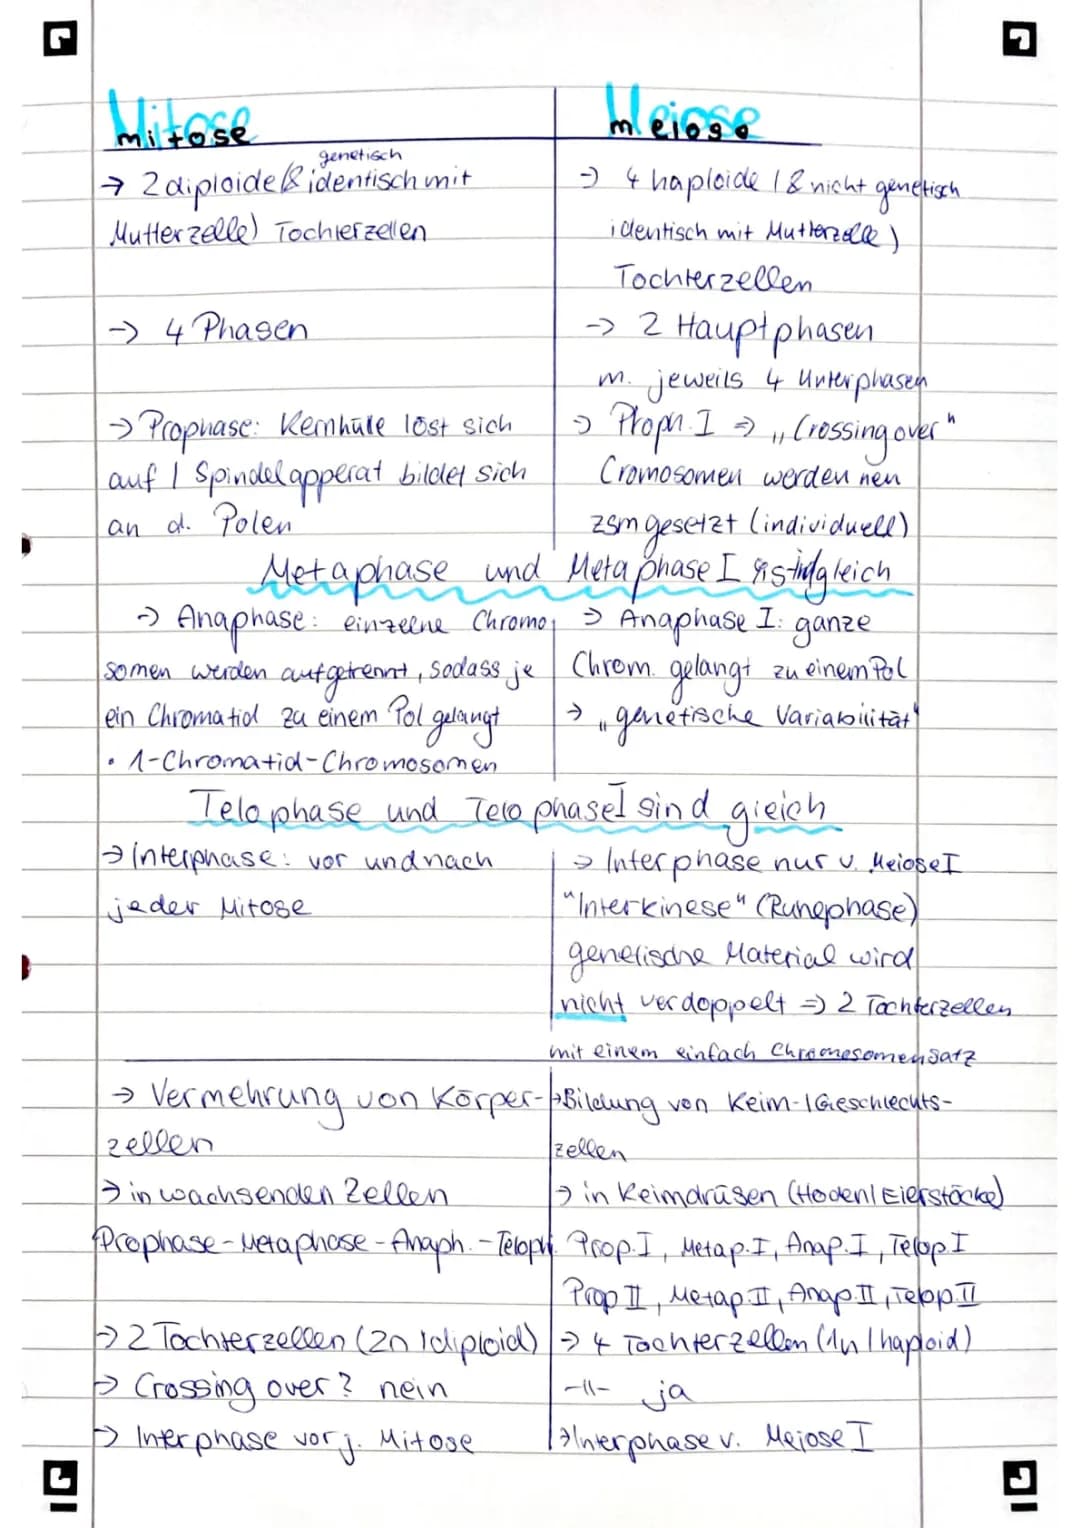 Mitose
Meiose
genetisch
→ 2 diploide (& identisch mit
Mutterzelle) Tochterzellen
→ 4 haploide (& nicht genetisch
identisch mit Mutterzelle)
Tochterzellen
→ 4 Phasen
→ 2 Hauptphasen
m. jeweils 4 Unterphasen
→ Prophase: Kernhülle löst sich
auf / Spindelapperat bildet sich
an d. Polen
→ Proph. I ⇒ „Crossing over"
Cromosomen werden neu
zsm gesetzt (individuell)
Metaphase und Metaphase I gleich
→ Anaphase: einzelne Chromo
somen werden aufgetrennt, sodass je
ein Chromatid zu einem Pol gelangt
• 1-Chromatid-Chromosomen
→ Anaphase I: ganze
Chrom. gelangt zu einem Pol
→ „genetische Variabilität"
Telophase und Telophase I sind gleich
→ Interphase: vor und nach
jeder Mitose
→ Interphase nur v. Meiose I
"Interkinese" (Ruhephase)
genetische Material wird
nicht verdoppelt ⇒ 2 Tochterzellen
mit einem einfach Chromosomensatz
→ Vermehrung von Körper-
zellen
→ Bildung von Keim-/Geschlechts-
zellen
→ in wachsenden Zellen
→ in Keimdrüsen (Hoden/Eierstöcke)
Prophase - Metaphase - Anaph. - Teloph.
Prop. I, Metap. I, Anap. I, Telop. I
Prop II, Metap. II, Anap. II, Telop. II
→ 2 Tochterzellen (2n / diploid)
→ 4 Tochterzellen (1n / haploid)
→ Crossing over? nein
-||- ja
→ Interphase vor j. Mitose
→ Interphase v. Meiose I